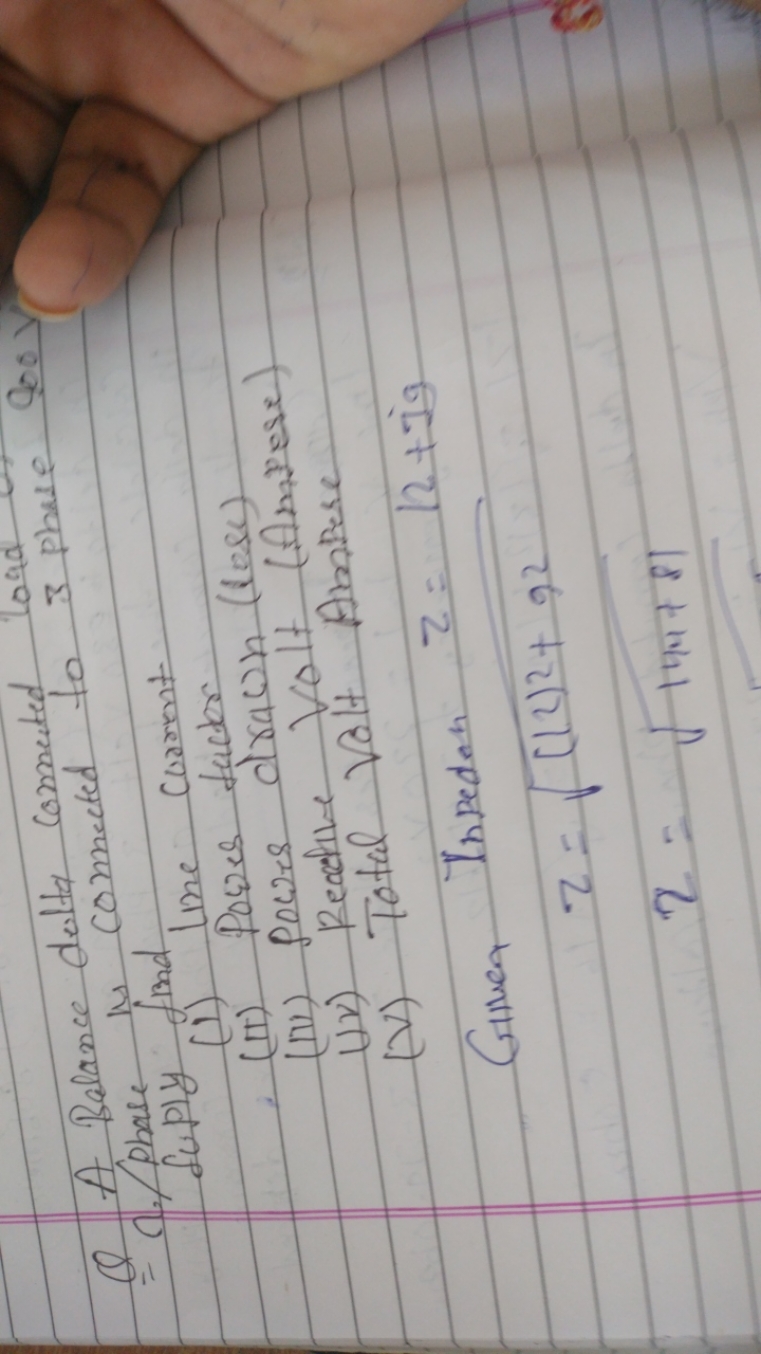 Q A Balance delta connected load
Ω/phase is connected to 3 phase 400 V
Supply find line current
(I)
(II) Power factor
(III) Power drawn (Lose)
(IV) Reactive Volt (Ampere)
(V) Total Volt Ampere
Given Impedan Z = 12 + J9
Z = √(12)2 + 92
Z = √144 + 81